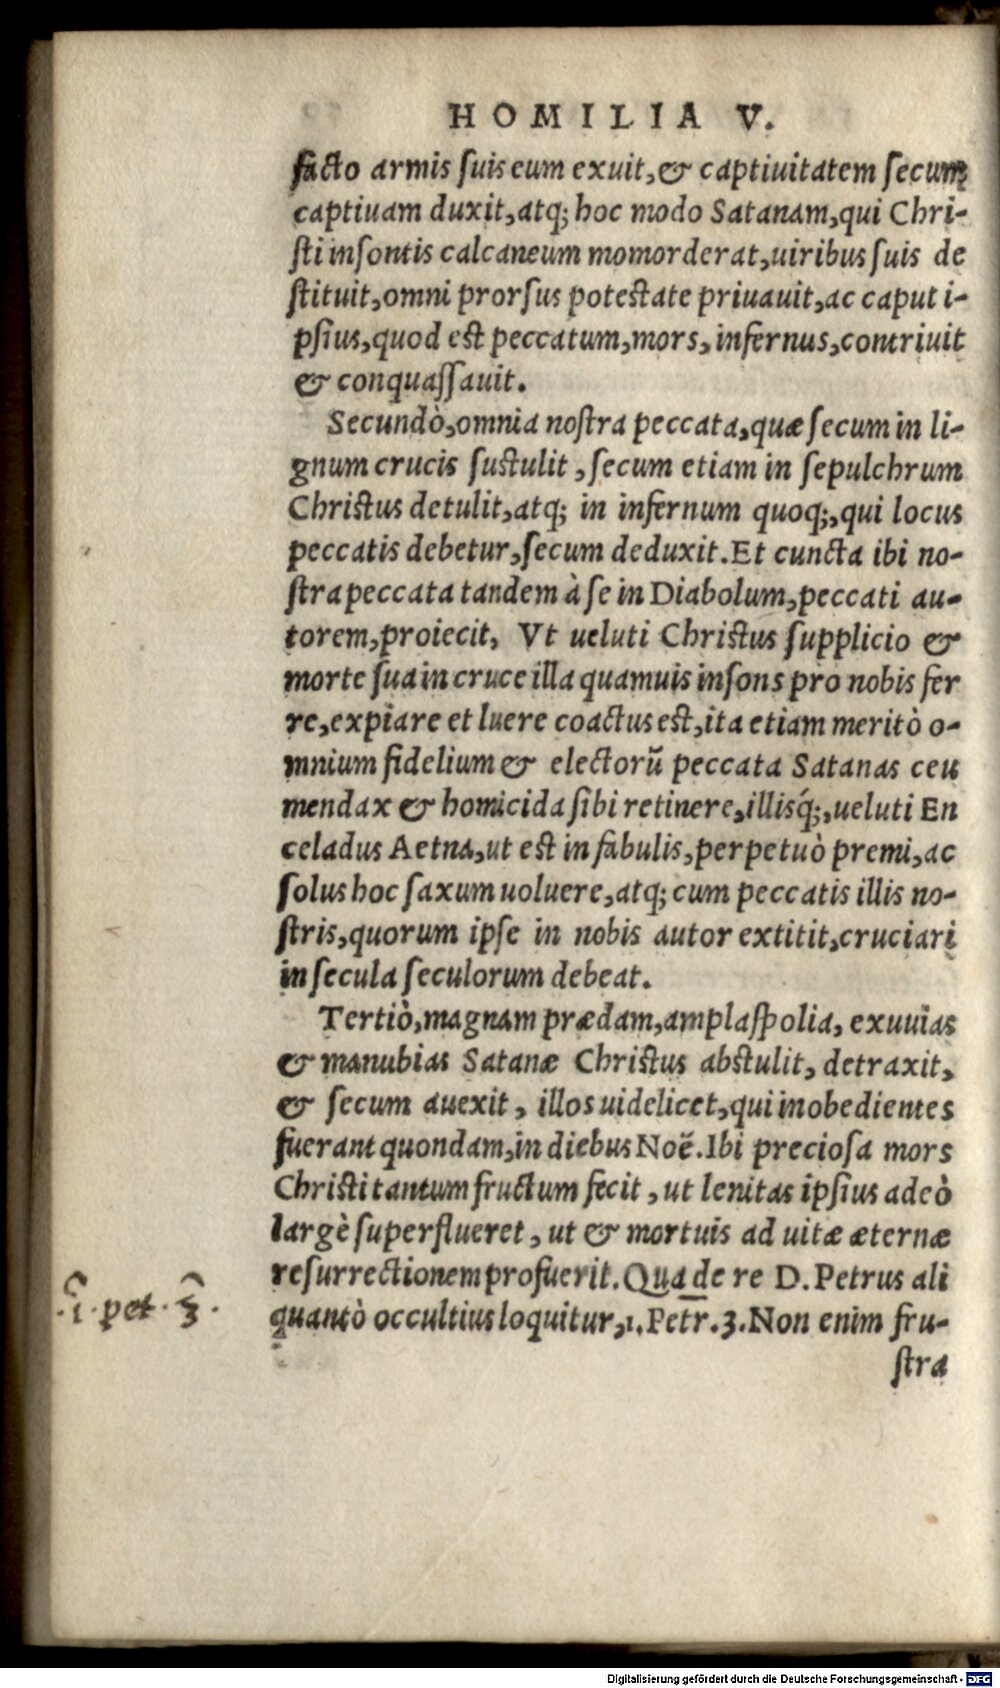 HOMILIA V.
facto armis ſuis eum exuit, & captiuitatem ſecum
captiuam duxit, atq; hoc modo Satanam, qui Chri-
ſti inſontis calcaneum momorderat, uiribus ſuis de
ſtituit, omni prorſus poteſtate priuauit, ac caput i-
pſius, quod eſt peccatum, mors, infernus, contriuit
& conquaſſauit.
Secundò, omnia noſtra peccata, quæ ſecum in li-
gnum crucis ſuſtulit, ſecum etiam in ſepulchrum
Chriſtus detulit, atq; in infernum quoq;, qui locus
peccatis debetur, ſecum deduxit. Et cuncta ibi no-
ſtra peccata tandem à ſe in Diabolum, peccati au-
torem, proiecit, Vt ueluti Chriſtus ſupplicio &
morte ſua in cruce illa quamuis inſons pro nobis fer
re, expiare et luere coactus eſt, ita etiam meritò o-
mnium fidelium & electorũ peccata Satanas ceu
mendax & homicida ſibi retinere, illisq́;, ueluti En
celadus Aetna, ut eſt in fabulis, perpetuò premi, ac
ſolus hoc ſaxum uoluere, atq; cum peccatis illis no-
ſtris, quorum ipſe in nobis autor extitit, cruciari
in ſecula ſeculorum debeat.
Tertiò, magnam prædam, ampla ſpolia, exuuias
& manubias Satanæ Chriſtus abſtulit, detraxit,
& ſecum auexit, illos uidelicet, qui inobedientes
fuerant quondam, in diebus Noë. Ibi precioſa mors
Chriſti tantum fructum fecit, ut lenitas ipſius adeò
largè ſuperflueret, ut & mortuis ad uitæ æternæ
reſurrectionem profuerit. Qua de re D. Petrus ali
quantò occultius loquitur, 1. Petr. 3. Non enim fru-
ſtra
.1. pet. 3.
Digitalisierung gefördert durch die Deutsche Forschungsgemeinschaft - DFG